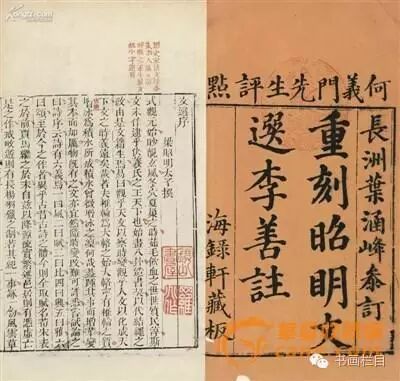 何義門先生評點
長洲葉涵峰參訂
重刻昭明文
選李善註
海錄軒藏板
文選序
梁昭明太子撰
式觀元始眇覿玄風冬穴夏巢之時茹毛飲血之世世質民淳斯
文未作逮乎伏羲氏之王天下也始畫八卦造書契以代結繩之
政由是文籍生焉易曰觀乎天文以察時變觀乎人文以化成天
下文之時義遠矣哉若夫椎輪為大輅之始大輅寧有椎輪之質
增冰為積水所成積水曾微增冰之凜何哉蓋踵其事而增華變
其本而加厲物既有之文亦宜然隨時變改難可詳悉嘗試論之
曰詩序云詩有六義焉一曰風二曰賦三曰比四曰興五曰雅六
曰頌至於今之作者異乎古昔古詩之體今則全取賦名荀宋表
之於前賈馬繼之於末自茲以降源流寔繁述邑居則有憑虛亡
是之作戒畋遊則有長楊羽獵之制若其紀一事詠一物風雲草
书画栏目